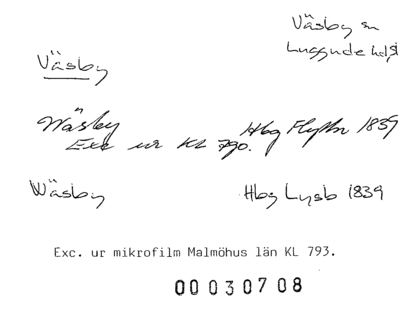 Väsby sn
Luggude hd
Väsby
Wäsby Hbg Flyttn 1839
Exc ur KL 790.
Wäsby Hbg Lysb 1839
Exc. ur mikrofilm Malmöhus län KL 793.
00030708